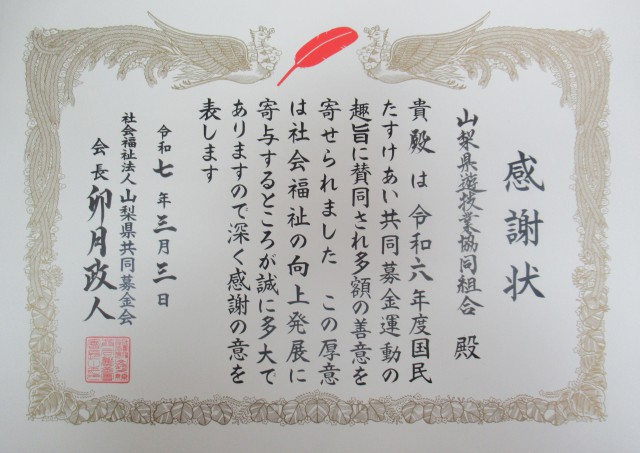 感謝状
山梨県造技業協同組合 殿
貴殿は令和六年度国民
たすけあい共同募金運動の
趣旨に賛同され多額の善意を
寄せられました この厚意
は社会福祉の向上発展に
寄与するところが誠に多大で
ありますので深く感謝の意を
表します
令和七年三月三日
社会福祉法人山梨県共同募金会
会長 卯月政人